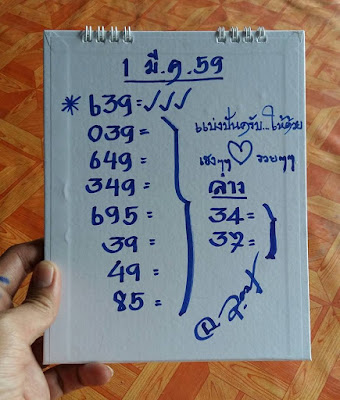 1 มี.ค.59
* 639=✓✓✓
039=
649=
349=
695=
39=
49=
85=
แบ่งปันครับ...ให้ด้วย
เฮงๆๆ ♡ รวยๆๆ
ล่าง
34=
37=